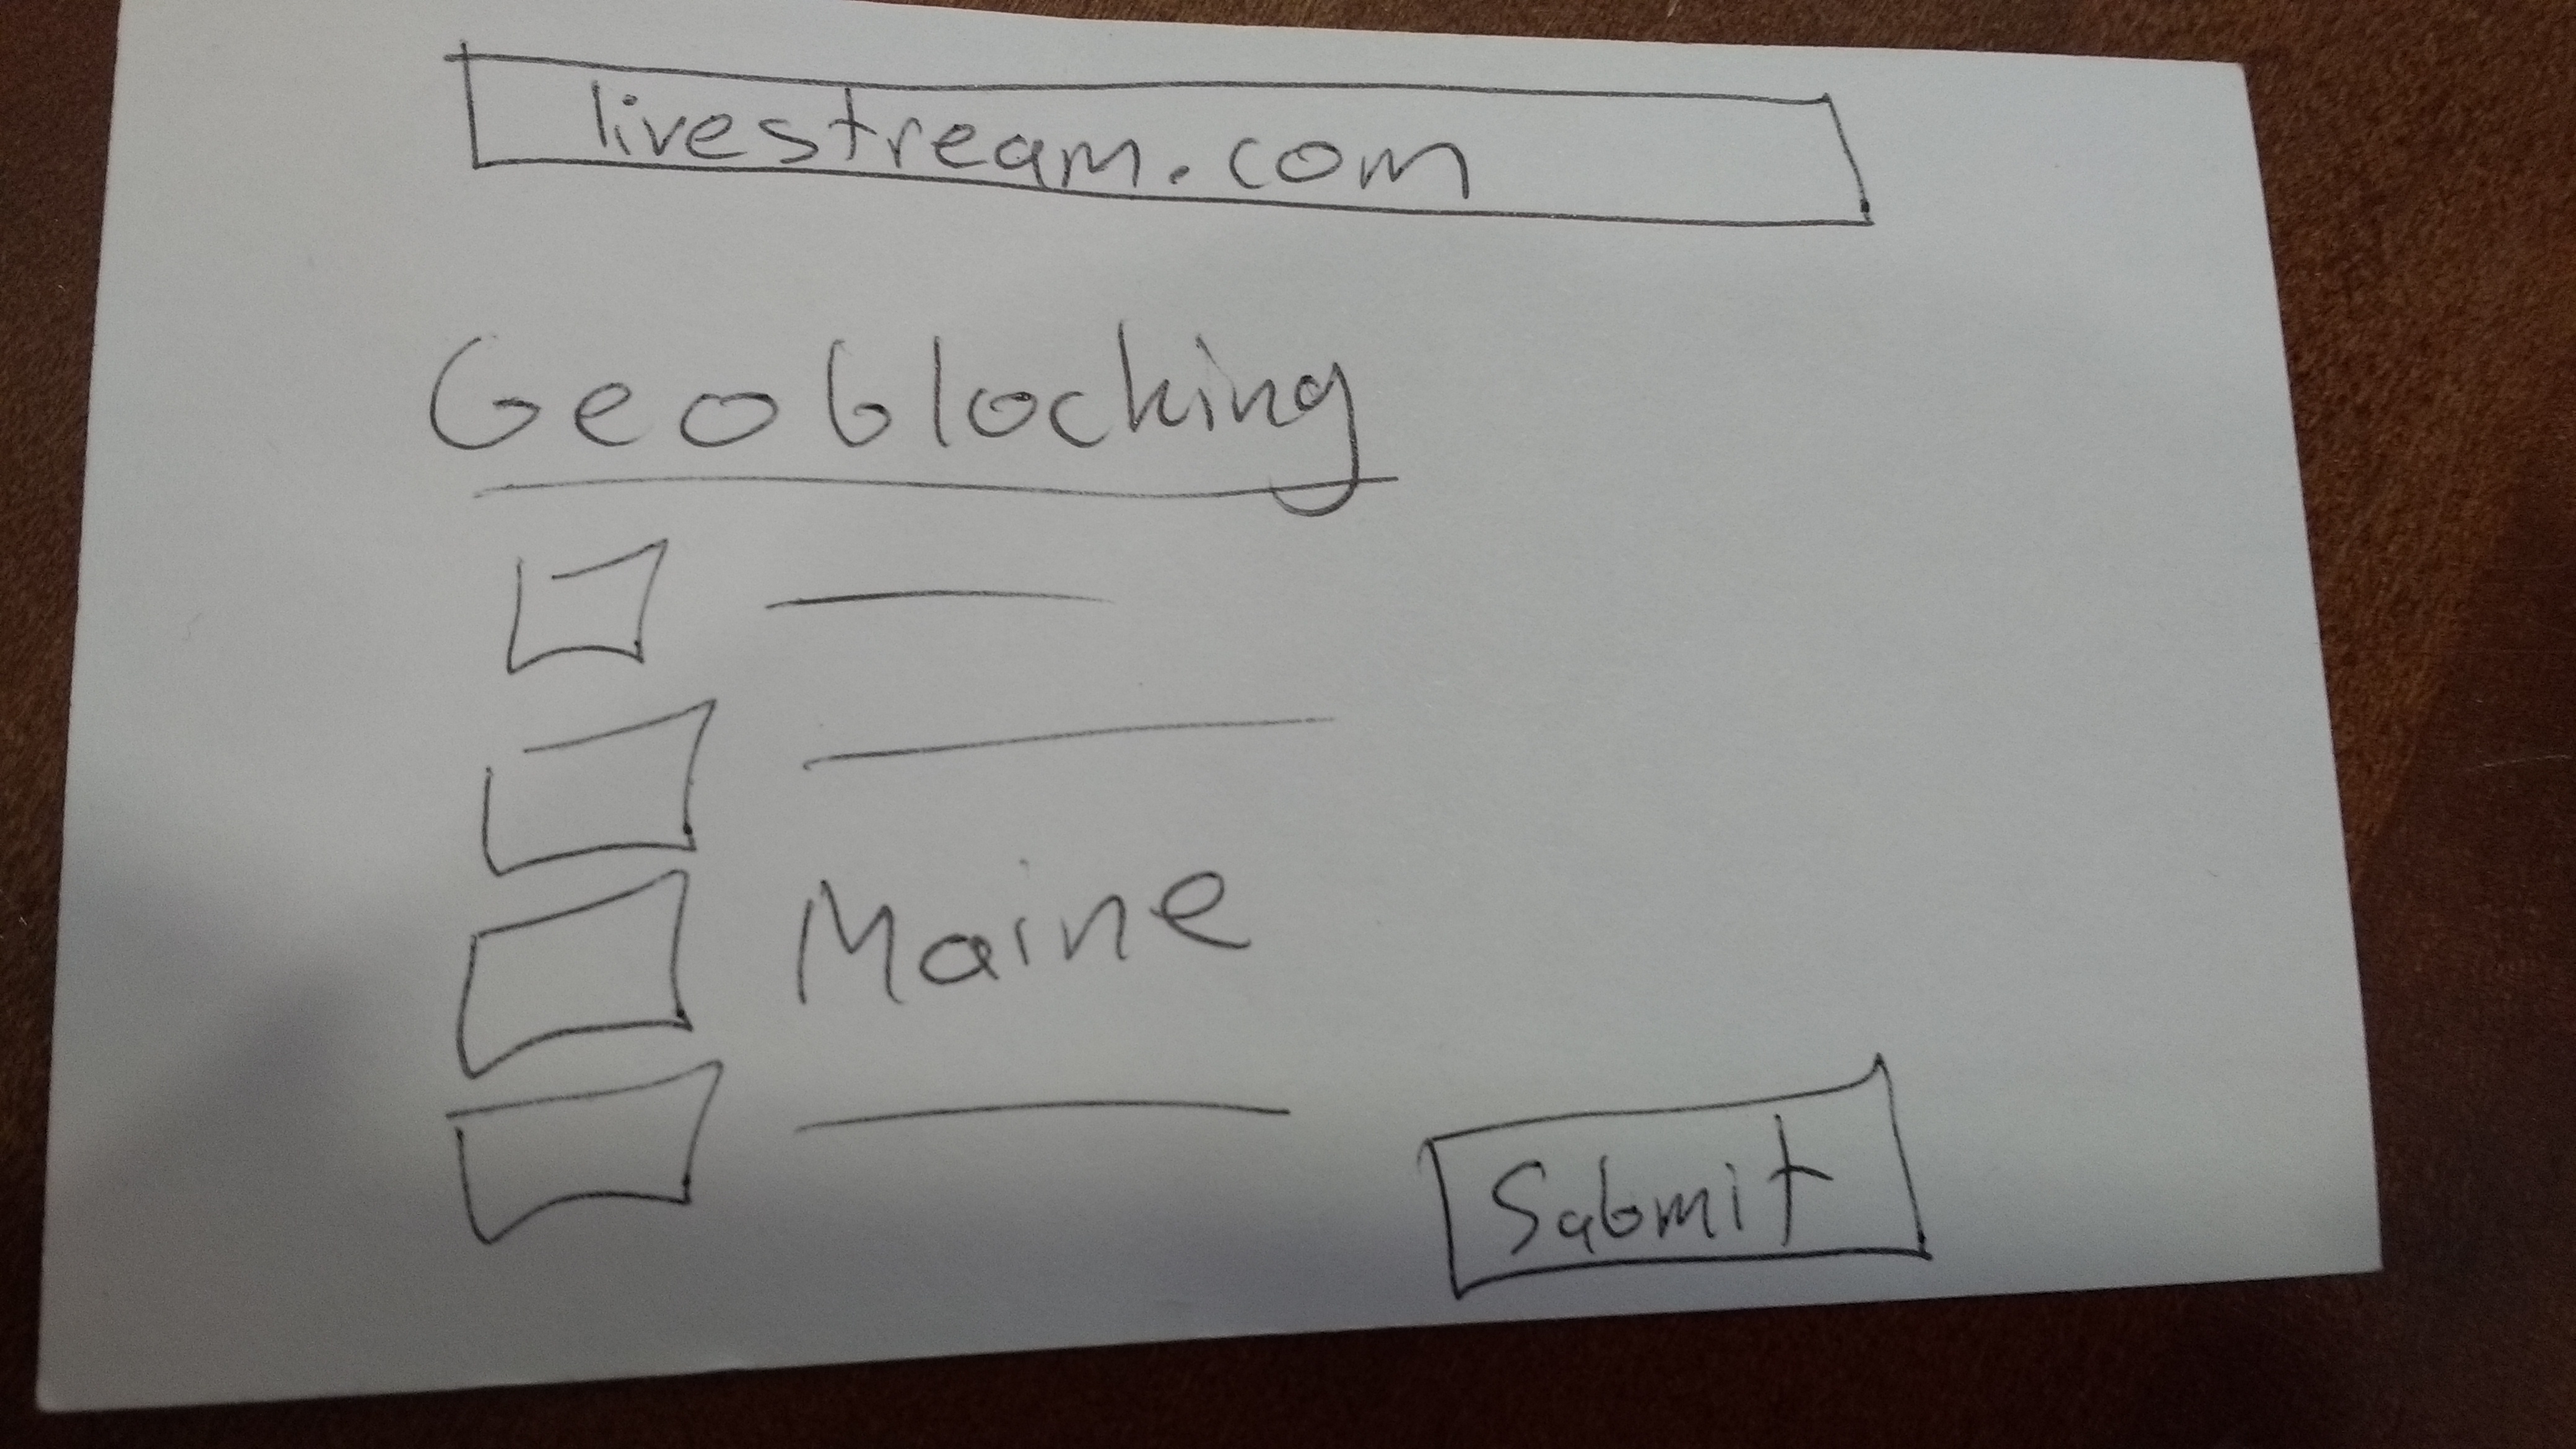 livestream.com
Geoblocking
Maine
Submit